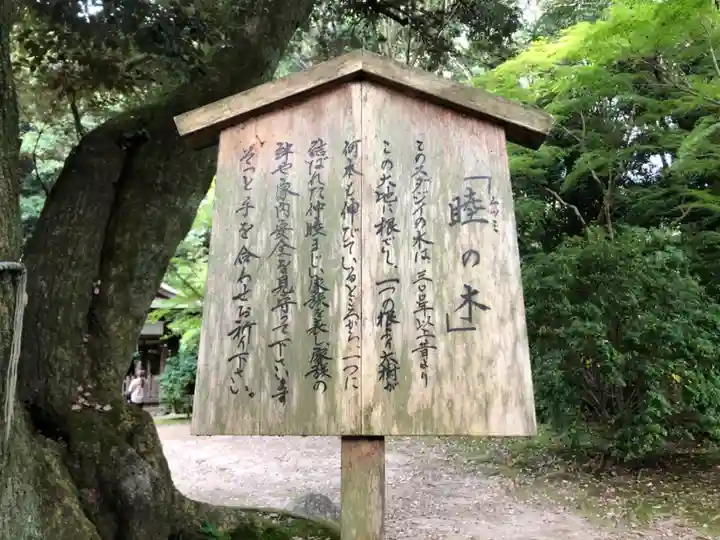 「睦の木」
むつみ
このスダジイの木は、三〇〇年以上昔より
この大地に根ざし、一つの根より大樹が
何本も伸びていることから、一つに
結ばれた仲睦まじい家族を表し家族の
絆や家内安全を見守って下さいます
そっと手を合わせお祈り下さい。